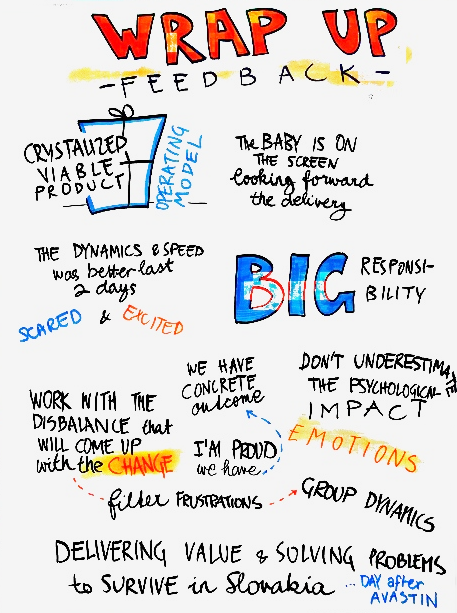 WRAP UP
-FEEDBACK-
CRYSTALIZED
VIABLE
PRODUCT
OPERATING
MODEL
The BABY IS ON
THE SCREEN
looking forward
the delivery
THE DYNAMICS & SPEED
was better last
2 days
SCARED & EXCITED
BIG RESPONSI-
BILITY
WE HAVE
CONCRETE
outcome
I'M PROUD
we have
DON'T UNDERESTIMA
THE PSYCHOLOGICAL
IMPACT
EMOTIONS
WORK WITH THE
DISBALANCE that
WILL COME UP
with the CHANGE
filter FRUSTRATIONS
GROUP DYNAMICS
DELIVERING VALUE & SOLVING PROBLEMS
to SURVIVE in Slovakia
... DAY after
AVASTIN